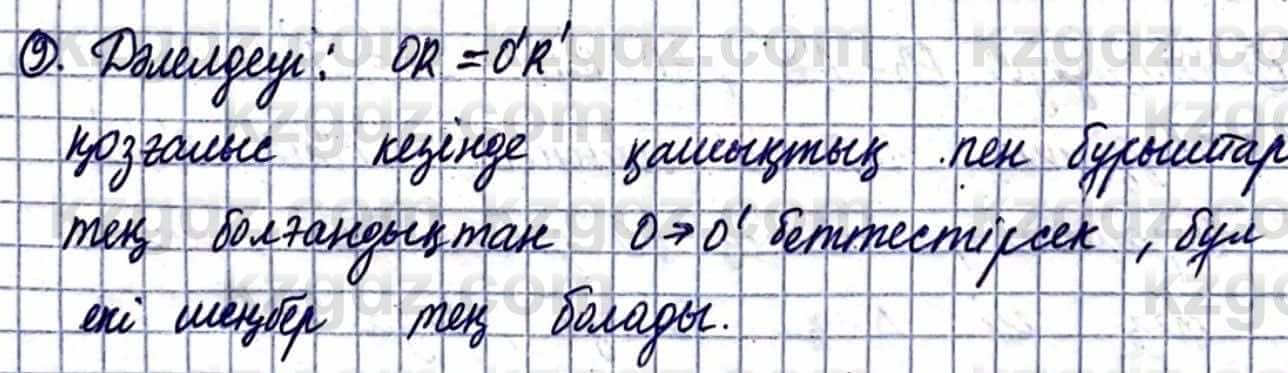 9. Дәлелдеуі: OR = O'R'
қозғалыс кезінде қашықтық пен бұрыштар
тең болғандықтан O→O' беттестірсек, бұл
екі шеңбер тең болады.